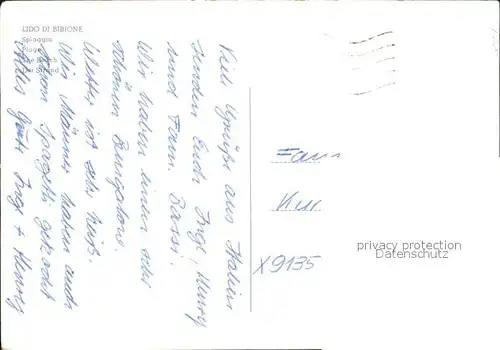 LIDO DI BIBIONE
Spiaggia
Plage
The Beach
Der Strand
Viele Grüße aus Italien
senden Euch Inge, Henry
und Fam. Bassi.
Wir haben einen sehr
schönen Bungalow.
Wetter ist sehr heiß.
Wir Männer haben auch
schon Spagetti gekocht
Alles Gute Inge + Henry
Fam
X9135
privacy protection
Datenschutz